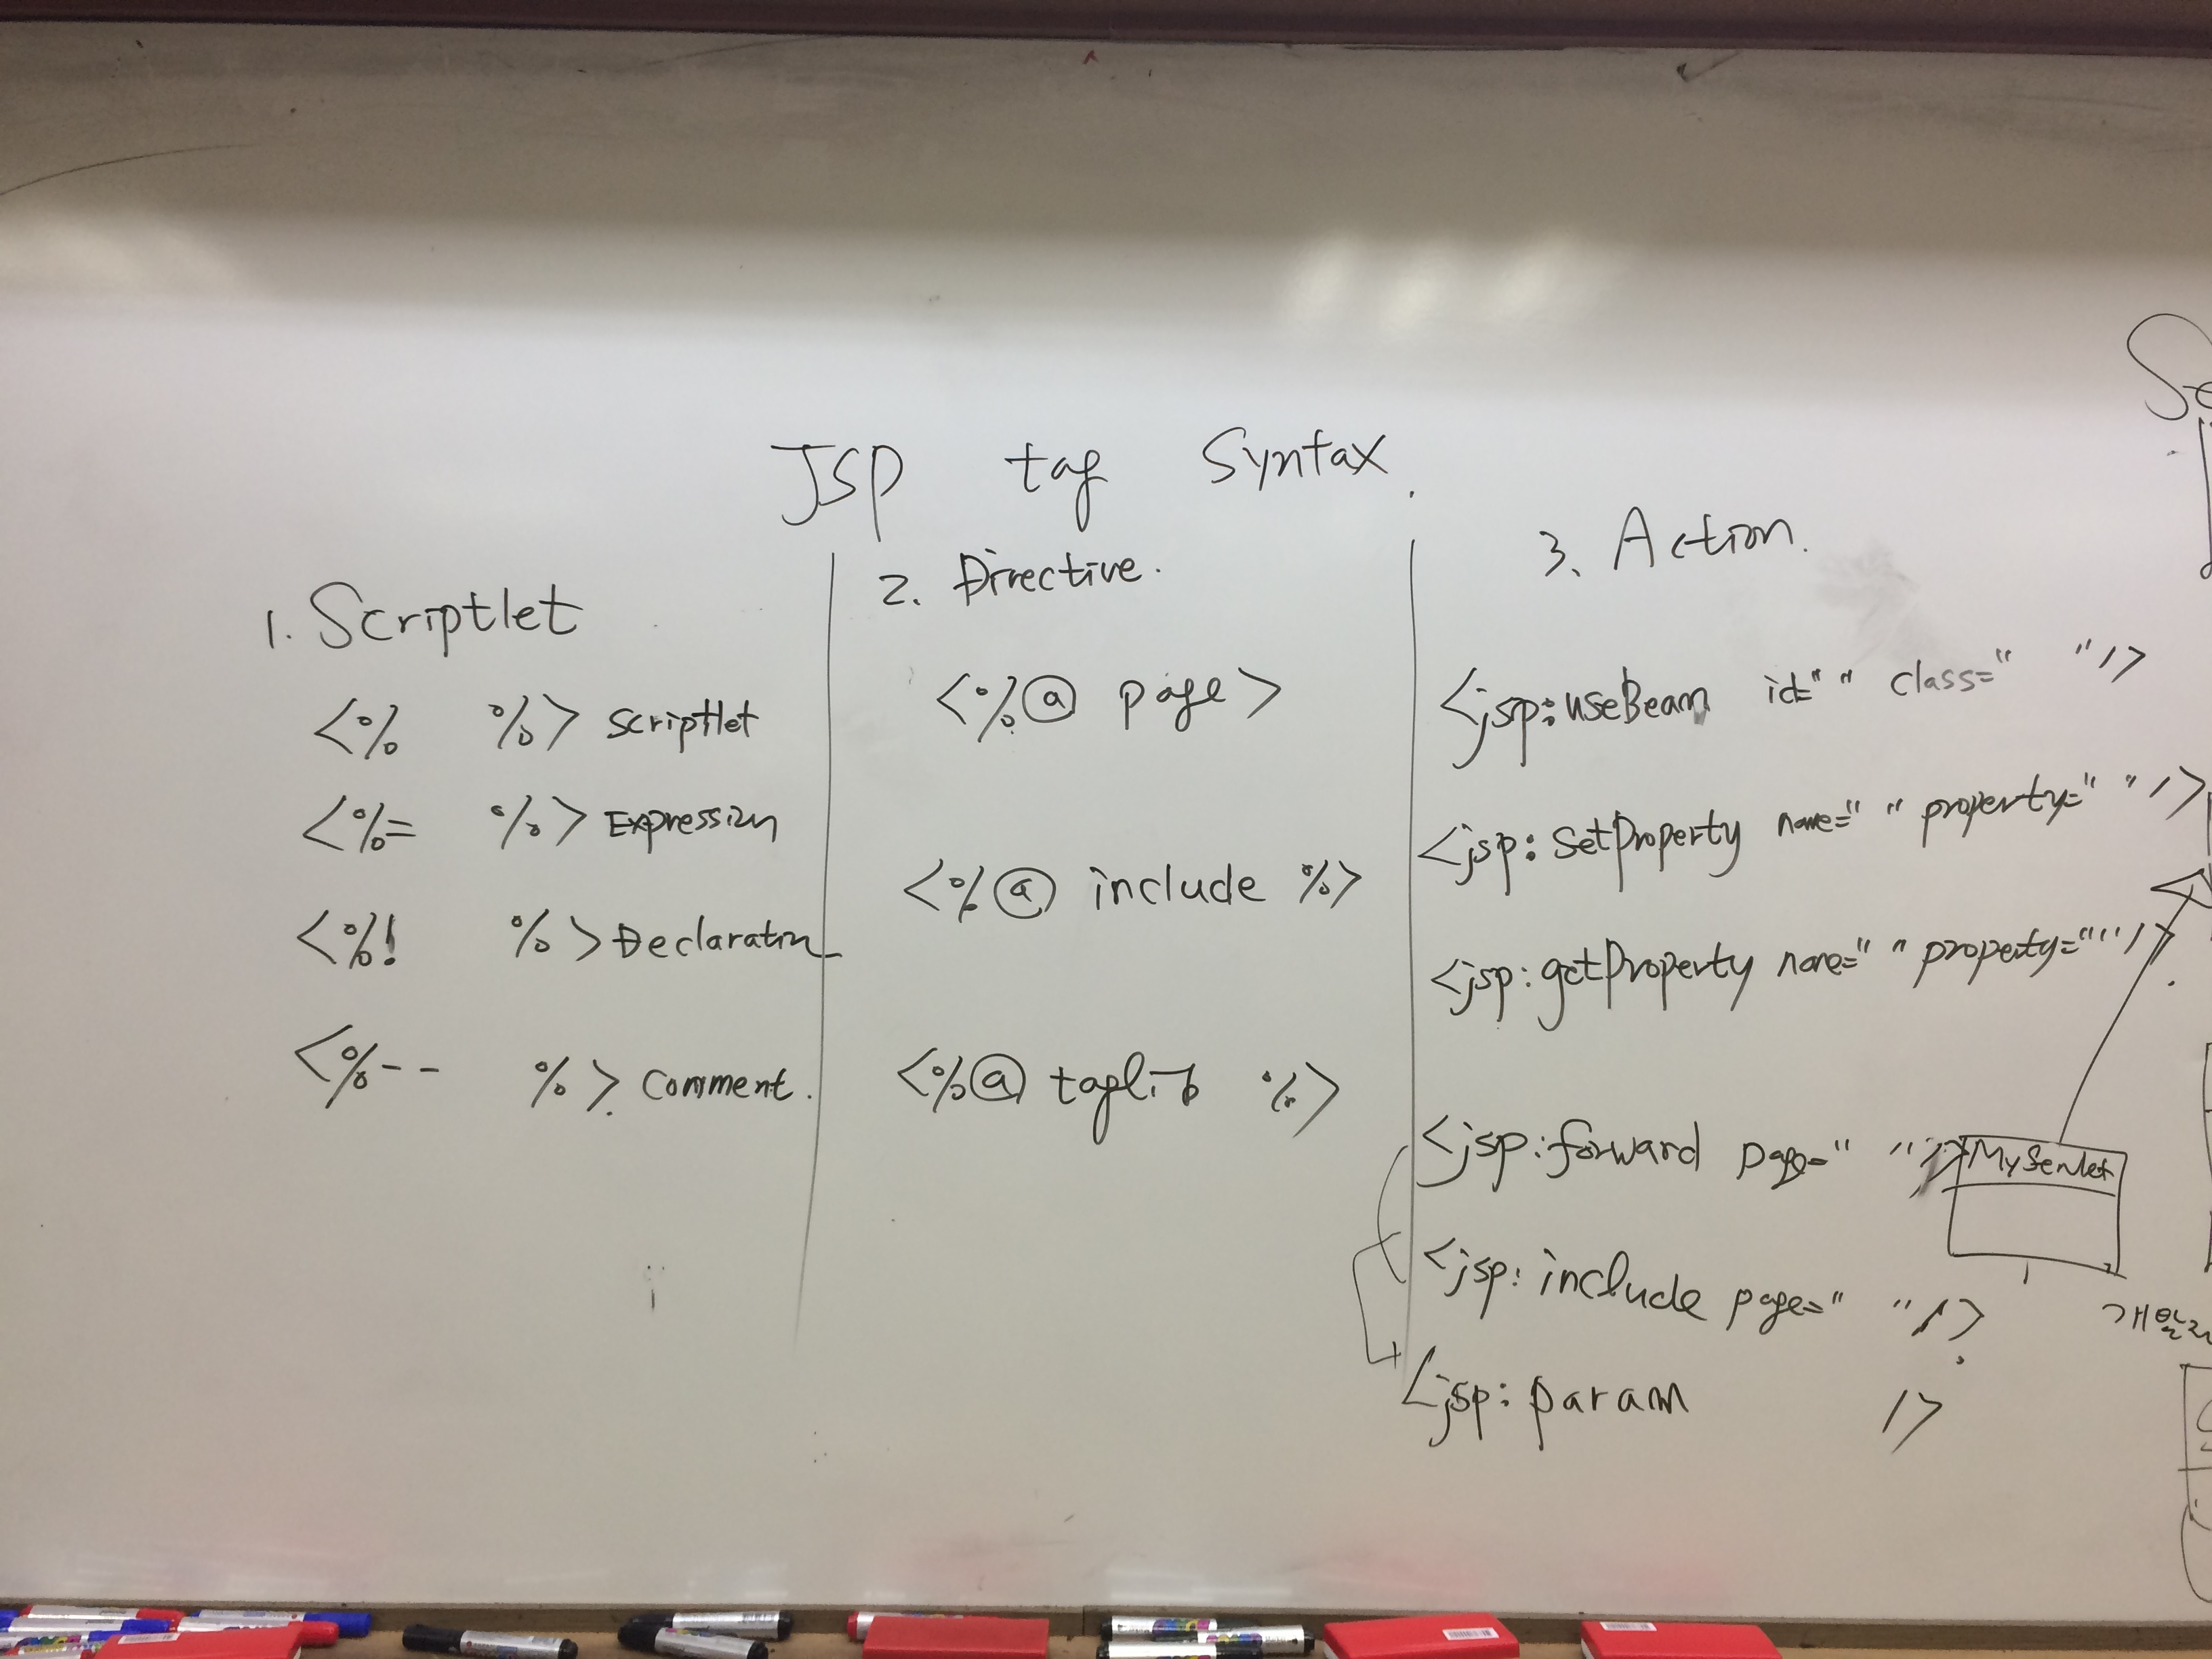 JSP tag Syntax.
1. Scriptlet
<% %> scriptlet
<%= %> Expression
<%! %> Declaration
<%-- %> comment.
2. Directive.
<%@ page>
<%@ include %>
<%@ taglib %>
3. Action.
<jsp:useBean id=" " class=" "/>
<jsp:setProperty name=" " property=" "/>
<jsp:getProperty name=" " property=""/>
<jsp:forward page=" "/>
<jsp:include page=" "/>
<jsp:param />
MyServlet
Se